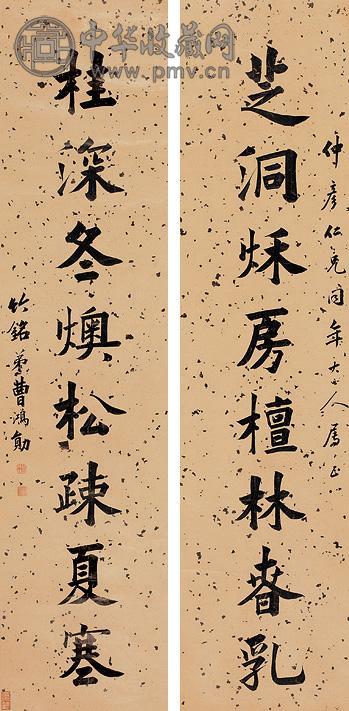 中华收藏网
www.pmv.cn
仲彦仁兄同年大人属正
芝洞秋房檀林春乳
桂深冬燠松疎夏寒
竹銘弟曹鴻勛